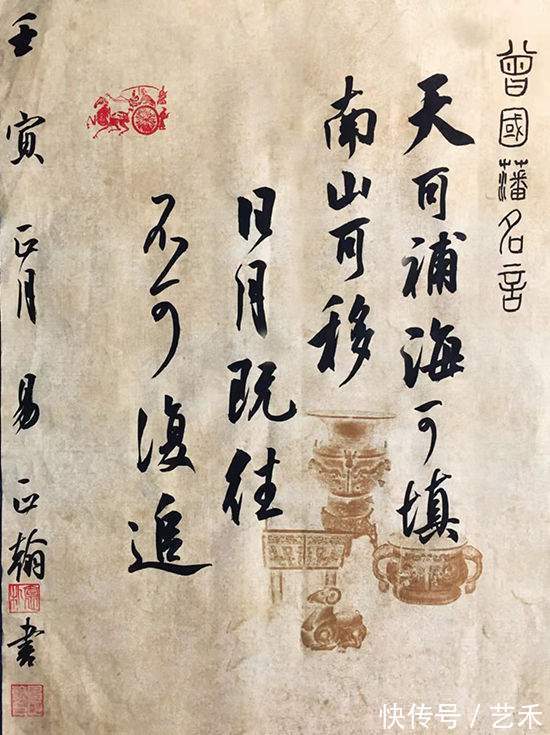 曾國藩名言
天可補海可填
南山可移
日月既往
不可復追
壬寅正月易正翰書
快传号/艺禾